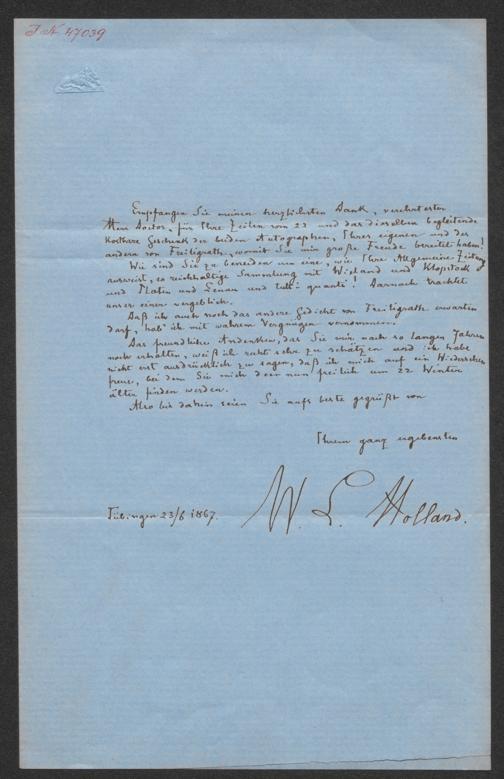 J N. 47039
Empfangen Sie meinen herzlichsten Dank, verehrtester
Herr Doctor, für Ihre Zeilen vom 22 und das dieselben begleitende
kostbare Geschenk der beiden Autographen, Ihrer eigenen und der
andern von Freiligrath, womit Sie mir große Freude bereitet haben!
Wie sind Sie zu beneiden um eine, wie Ihre Allgemeine Zeitung
ausweist, so reichhaltige Sammlung mit Wieland und Klopstock
und Platen und Lenau und tutti quanti! Darnach trachtet
unser einer vergeblich.
Daß ich auch noch das andere Gedicht von Freiligrath erwarten
darf, hab' ich mit wahrem Vergnügen vernommen.
Das freundliche Andenken, das Sie mir nach so langen Jahren
noch erhalten, weiß ich recht sehr zu schätzen und ich habe
nicht erst ausdrücklich zu sagen, daß ich mich auf ein Wiedersehen
freue, bei dem Sie mich denn nun freilich um 22 Winter
älter finden werden.
Also bis dahin seien Sie aufs beste gegrüßt von
Ihrem ganz ergebensten
W. L. Holland.
Tübingen 23/6 1867.